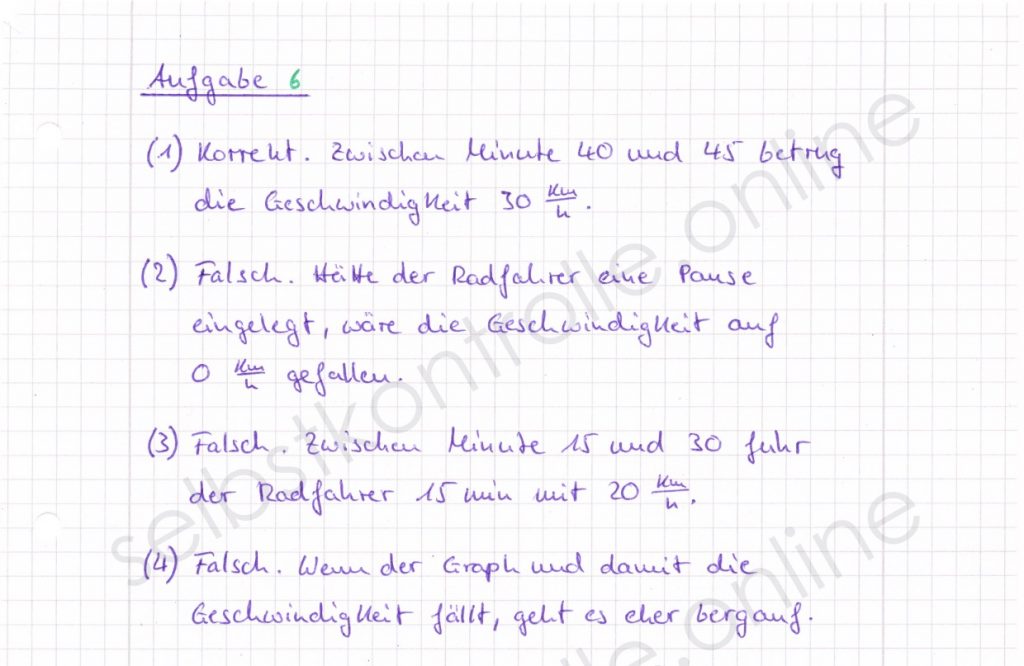 Aufgabe 6
(1) Korrekt. Zwischen Minute 40 und 45 betrug
die Geschwindigkeit 30 km/h.
(2) Falsch. Hätte der Radfahrer eine Pause
eingelegt, wäre die Geschwindigkeit auf
0 km/h gefallen.
(3) Falsch. Zwischen Minute 15 und 30 fuhr
der Radfahrer 15 min mit 20 km/h.
(4) Falsch. Wenn der Graph und damit die
Geschwindigkeit fällt, geht es eher bergauf.
selbstkontrolle.online
online